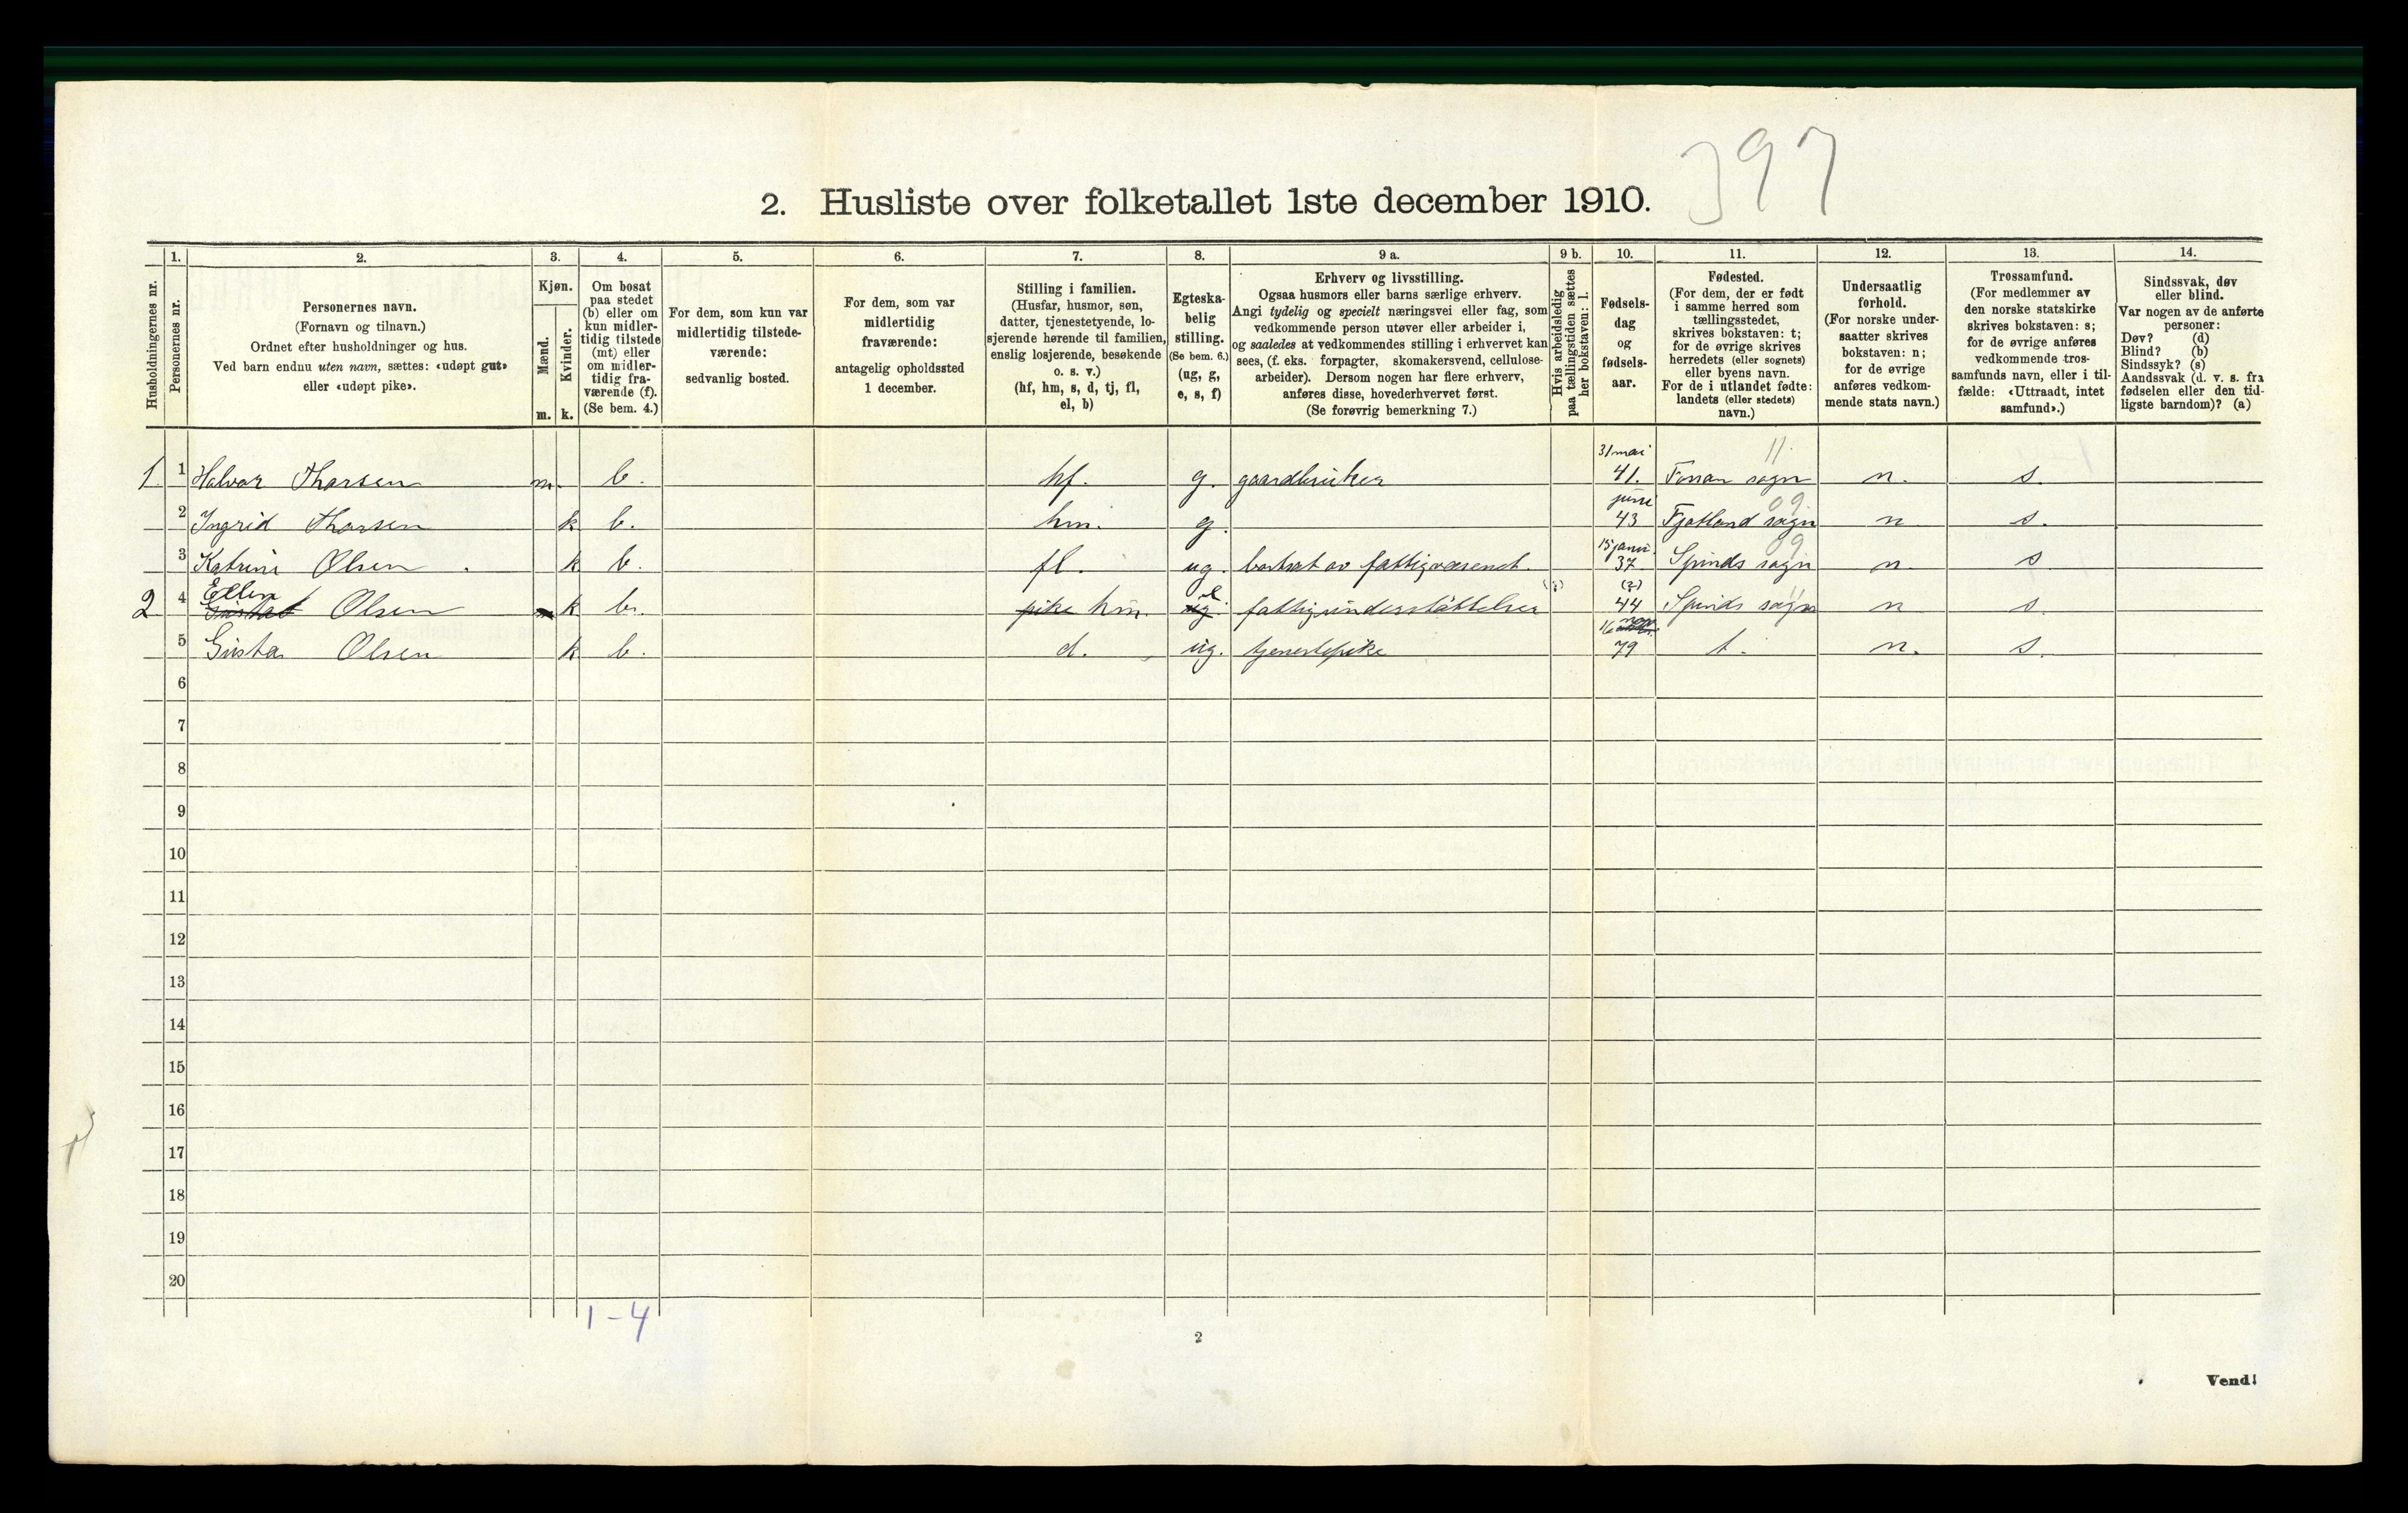 397
2. Husliste over folketallet 1ste december 1910.
Husholdningernes nr.
1.
Personernes nr.
2.
Personernes navn.
(Fornavn og tilnavn.)
Ordnet efter husholdninger og hus.
Ved barn endnu uten navn, sættes: «udøpt gut»
eller «udøpt pike».
3.
Kjøn.
Mænd.
m.
Kvinder.
k.
4.
Om bosat
paa stedet
(b) eller om
kun midler-
tidig tilstede
(mt) eller
om midler-
tidig fra-
værende (f).
(Se bem. 4.)
5.
For dem, som kun var
midlertidig tilstede-
værende:
sedvanlig bosted.
6.
For dem, som var
midlertidig
fraværende:
antagelig opholdssted
1 december.
7.
Stilling i familien.
(Husfar, husmor, søn,
datter, tjenestetyende, lo-
sjerende hørende til familien,
enslig losjerende, besøkende
o. s. v.)
(hf, hm, s, d, tj, fl,
el, b)
8.
Egteska-
belig
stilling.
(Se bem. 6.)
(ug, g,
e, s, f)
9 a.
Erhverv og livsstilling.
Ogsaa husmors eller barns særlige erhverv.
Angi tydelig og specielt næringsvei eller fag, som
vedkommende person utøver eller arbeider i,
og saaledes at vedkommendes stilling i erhvervet kan
sees, (f. eks. forpagter, skomakersvend, cellulose-
arbeider). Dersom nogen har flere erhverv,
anføres disse, hovederhvervet først.
(Se forøvrig bemerkning 7.)
9 b.
Hvis arbeidsledig
paa tællingstiden sættes
her bokstaven: l.
10.
Fødsels-
dag
og
fødsels-
aar.
11.
Fødested.
(For dem, der er født
i samme herred som
tællingsstedet,
skrives bokstaven: t;
for de øvrige skrives
herredets (eller sognets)
eller byens navn.
For de i utlandet fødte:
landets (eller stedets)
navn.)
12.
Undersaatlig
forhold.
(For norske under-
saatter skrives
bokstaven: n;
for de øvrige
anføres vedkom-
mende stats navn.)
13.
Trossamfund.
(For medlemmer av
den norske statskirke
skrives bokstaven: s;
for de øvrige anføres
vedkommende tros-
samfunds navn, eller i til-
fælde: «Uttraadt, intet
samfund».)
14.
Sindssvak, døv
eller blind.
Var nogen av de anførte
personer:
Døv? (d)
Blind? (b)
Sindssyk? (s)
Aandssvak (d. v. s. fra
fødselen eller den tid-
ligste barndom)? (a)
1. 1 Halvar Tharsen m. b. hf. g. gaardbruker 31 mai 41. sogn 11. n. s.
2 Ingrid Tharsen k b. hm. g. juni 43 Fjotland sogn 09 n s.
3 Katrine Olsen k b. fl. ug. bortsat av fattigvæsenet. 15 janu. 37. Spinds sogn 09 n. s
2 4 Ellen Olsen k b. pike hm. ug. fattigunderstøttelse (?) 44 Spinds sogn 11 n s.
5 Gusta Olsen k b. d. ug. tjenestepike 16 nov. 79 t. n. s.
6
7
8
9
10
11
12
13
14
15
16
17
18
19
20
1-4
2
Vend!